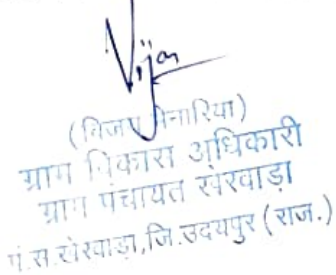 Vijay
(विजय पनारिया)
ग्राम विकास अधिकारी
ग्राम पंचायत खेरवाड़ा
पं.स.खेरवाड़ा,जि.उदयपुर (राज.)